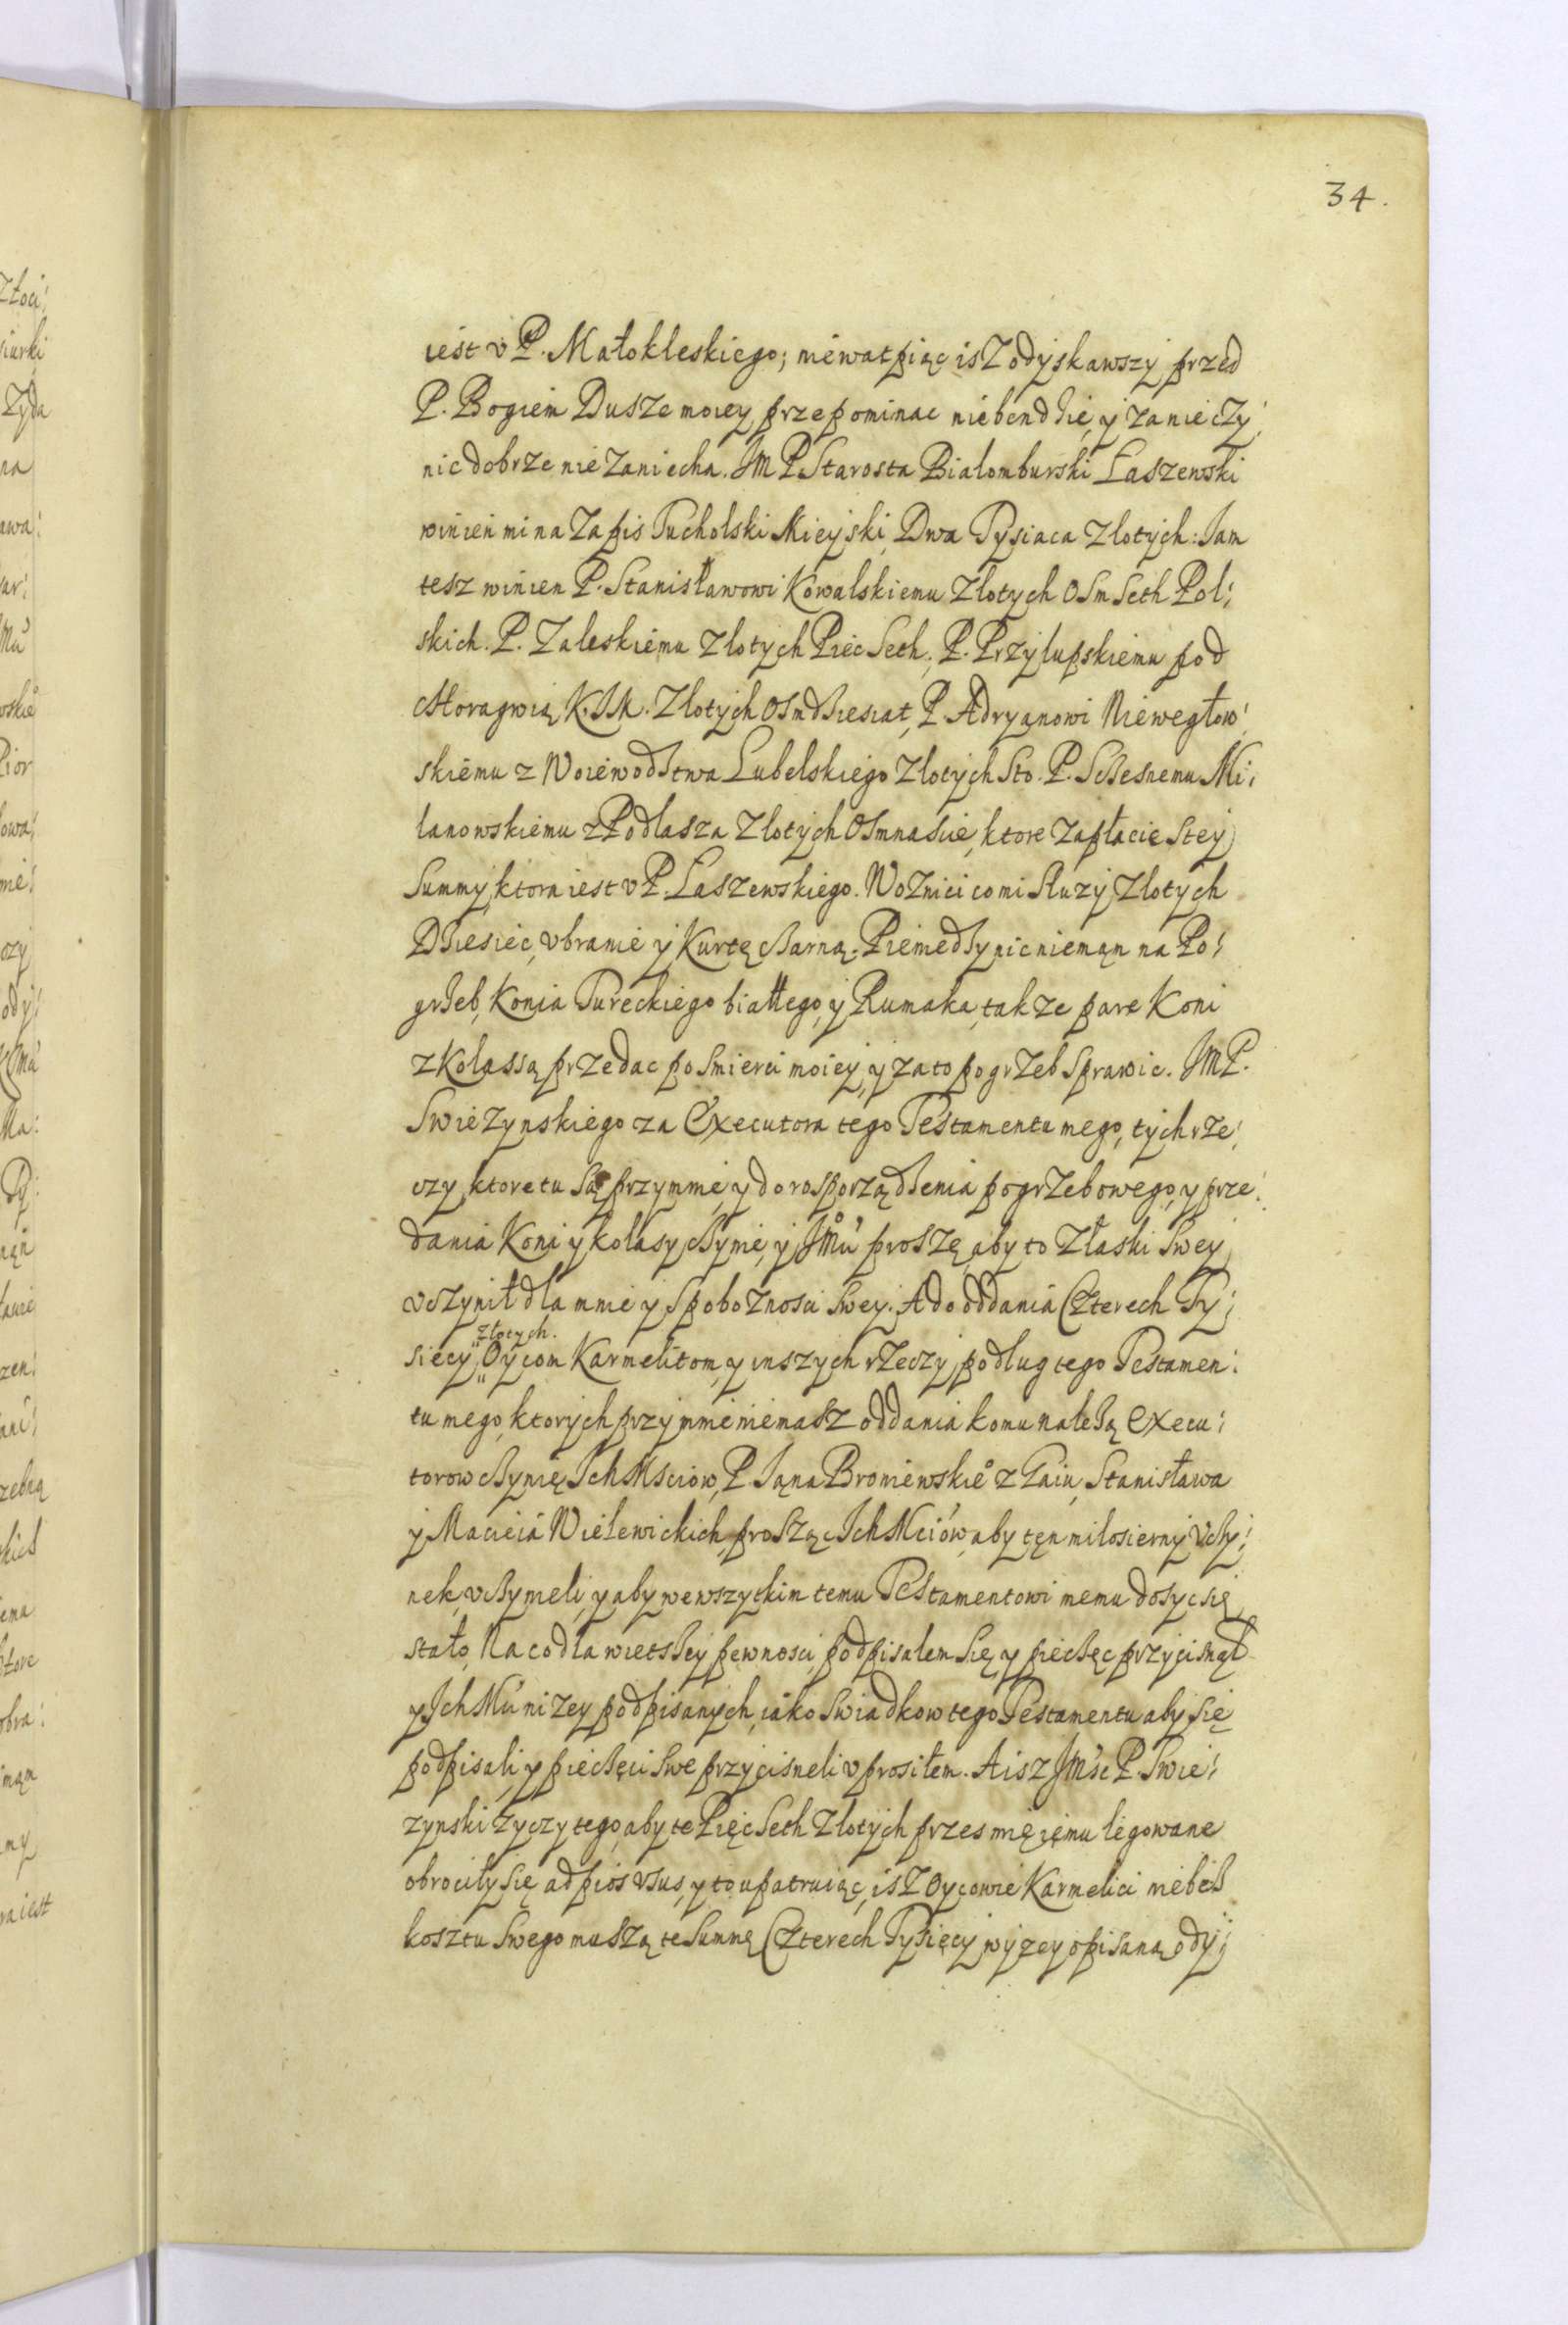 34.
iest v P. Małokleskiego; niewatpiąc isz odyskawszy przed
P. Bogiem Dusze moiey przepominac niebendzie, y zanie czy¦
nic dobrze nie zaniecha. JM P. Starosta Białomburski Łaszewski
winien mi na Zapis Tucholski Mieyski Dwa Tysiaca Złotych: Jam
tesz winien P. Stanisławowi Kowalskiemu Złotych Osm Seth Pol¦
skich. P. Zaleskiemu Złotych Piec Seth, P. Przylupskiemu pod
choragwią K. JM. Złotych Osmdziesiat, P. Adryanowi Niewegłow¦
skiemu z Woiewodstwa Lubelskiego Złotych Sto. P. Sczesnemu Mi¦
lanowskiemu z Podlasza Złotych Osmnascie, ktore zapłacic s tey
Summy ktora iest v P. Łaszewskiego. Woznici co mi Słuzy Złotych
Dziesiec, vbranie y Kurtę czarną. Pieniedzy nic niemąn na Po¦
grzeb, Konia Tureckiego białłego, y Rumaka, takze pare Koni
z Kolassą przedac po smierci moiey, y za to pogrzeb sprawic. JM P.
Swiezynskiego za Executora tego Testamentu mego, tych rze¦
czy ktore tu są przymnie, y do rosporządzenia pogrzebowego, y prze¦
dania Koni y kolasy czynie, y JMu proszę, aby to z łaski swey
vczynił dla mnie y s poboznosci swey. A do oddania Czterech Ty¦
siecy złotych. Oycom Karmelitom, y inszych rzeczy podług tego Testamen¦
tu mego, ktorych przymnie niemasz oddania komu należą Execu¦
torow czynię Ich Msciow, P. Jąna Broniewskieo z Gaiu, Stanisława
y Macieia Wielewickich, prosząc Ich Mciów, aby tęn miłosierny vczy¦
nek, vczyneli, y aby we wszytkim temu Testamentowi memu dosyc się
stało, Na co dla wietszey pewnosci podpisalem się y pieczęc przycisnął
y Ich Mu nizey podpisanych, iako swiadkow tego Testamentu aby się
podpisali, y pieczęci swe przycisneli vprosiłem. A isz JMsc P. Swie¦
zynski zyczy tego, aby te Pięc Seth Złotych przes mię iemu legowane
obrociły się ad pios vsus, y to upatruiąc, isz Oycowie Karmelici niebez
kosztu swego muszą te Summę Czterech Tysięcy wyzey opisaną ody¦